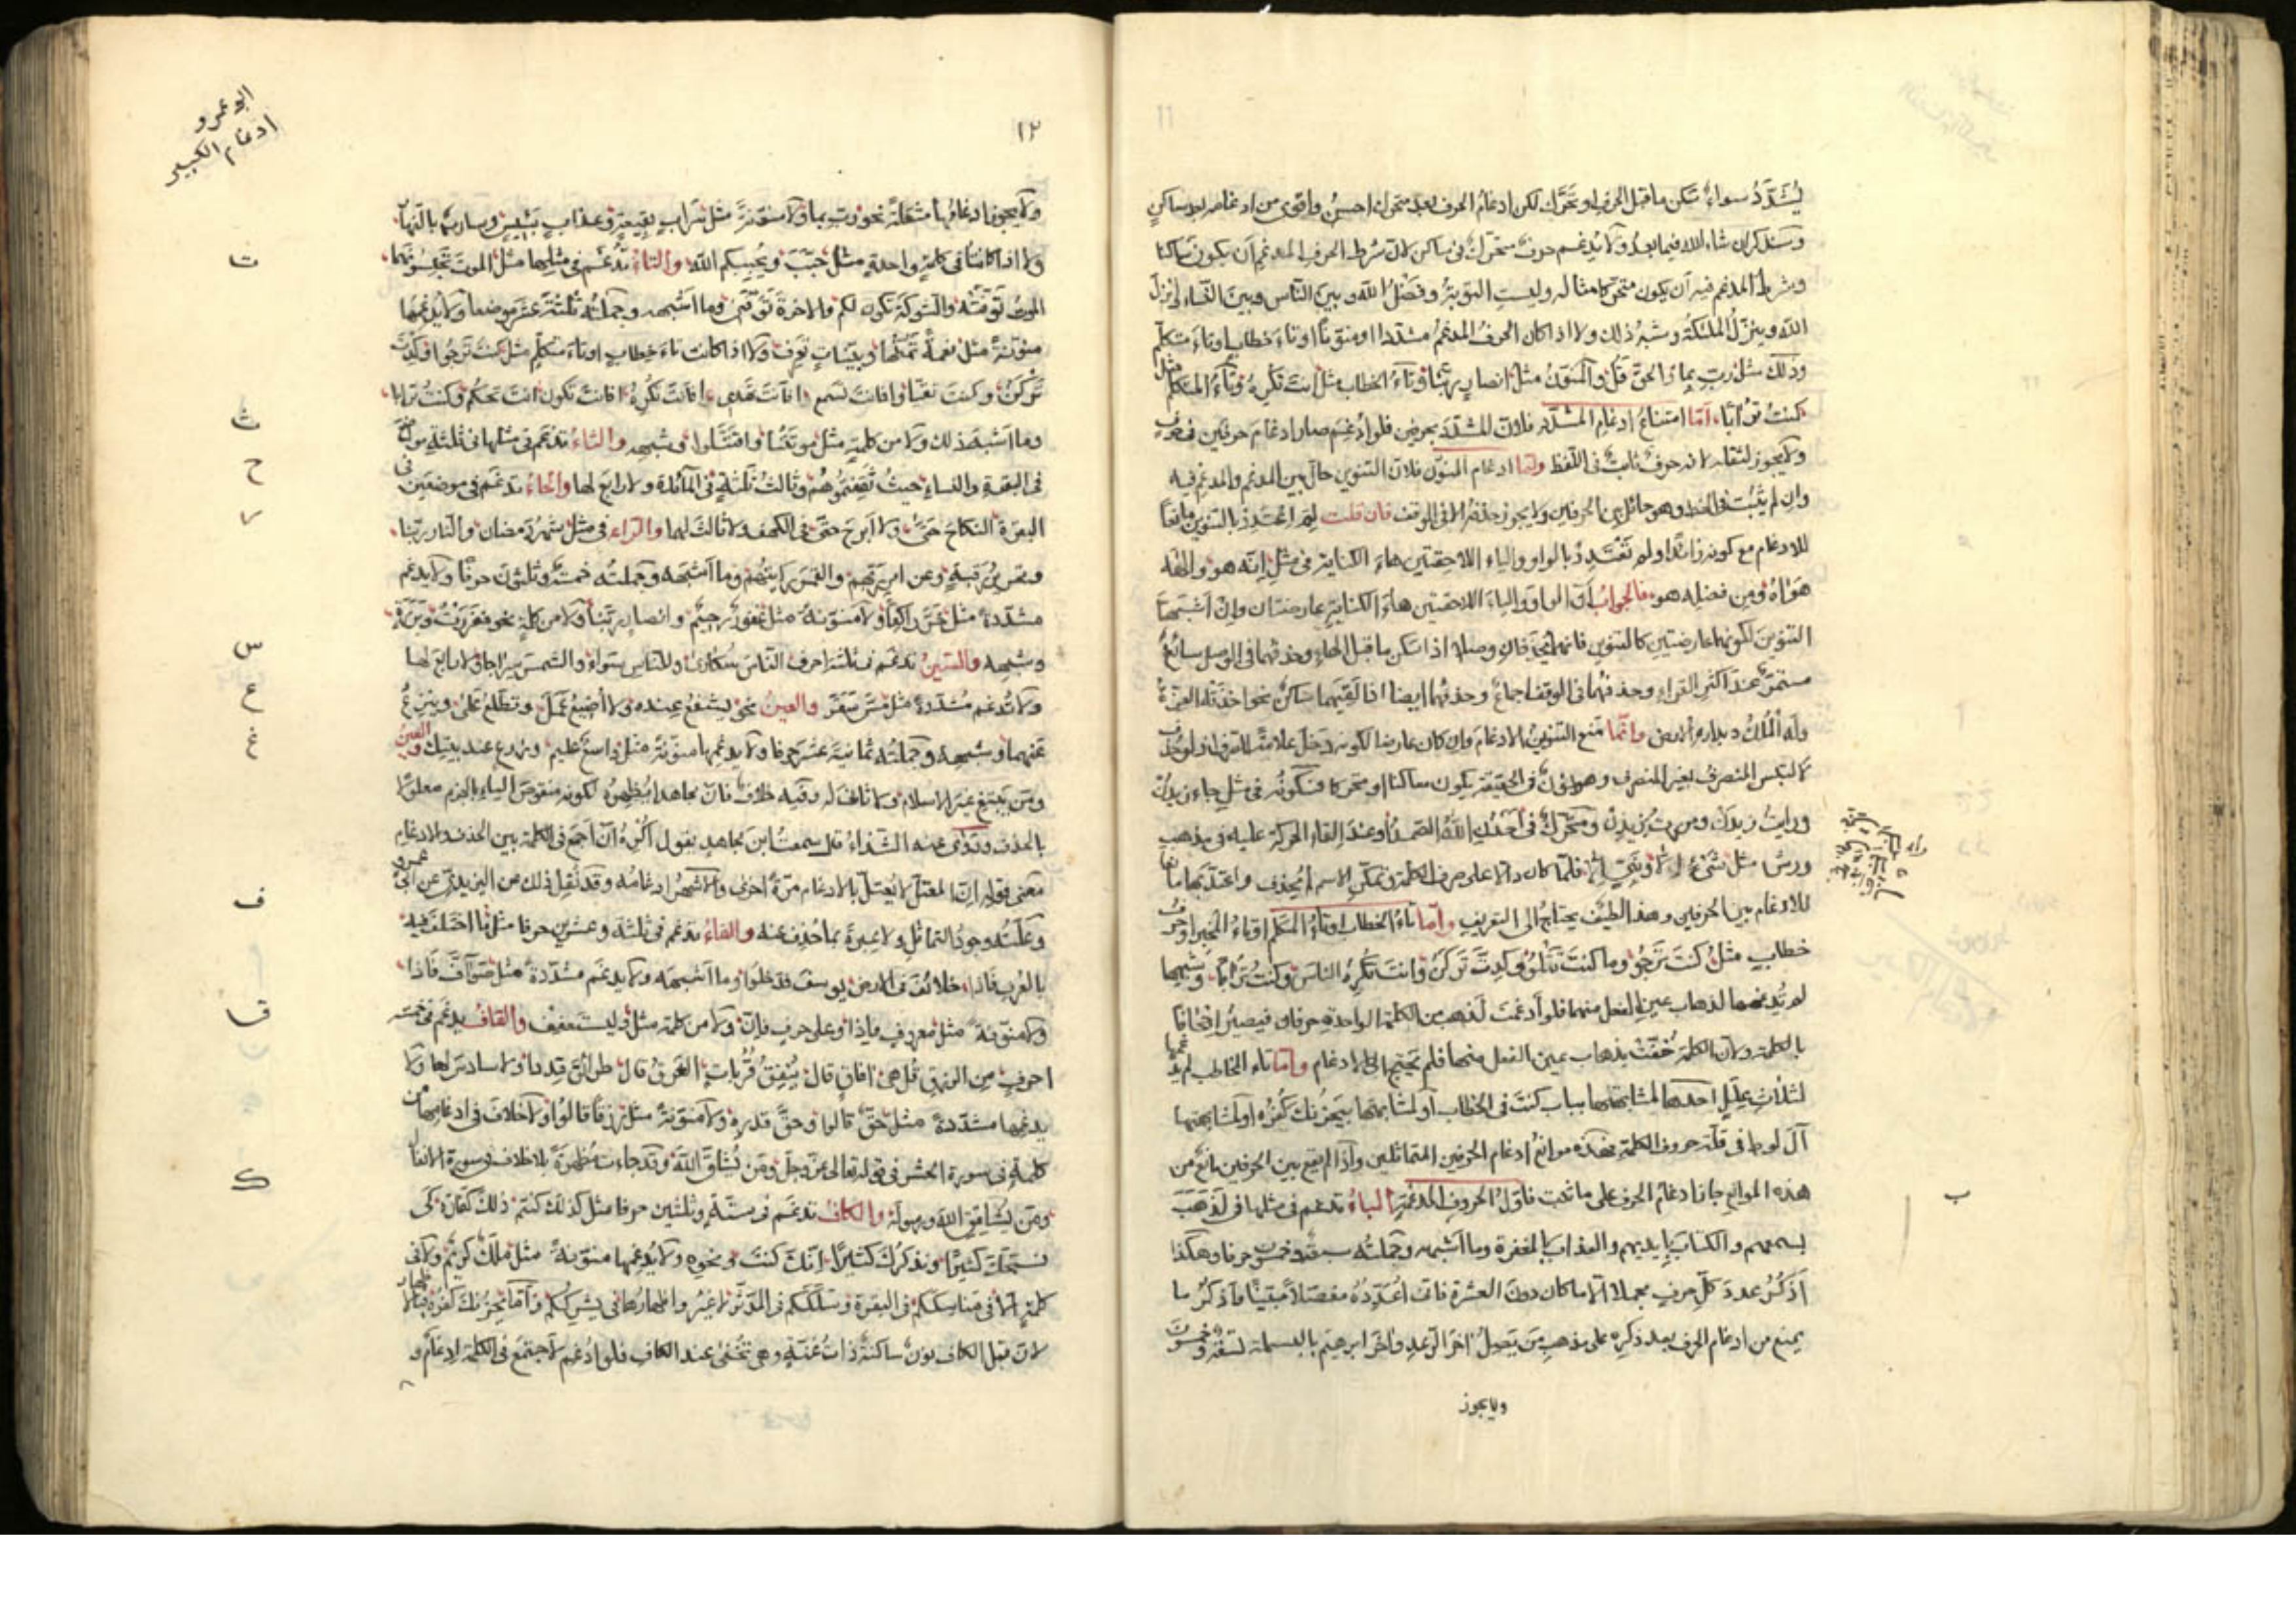 يُشَدَّدُ سواءٌ سَكن ما قبل الحرف او تَحَرَّك لكن ادغامُ الحرف بعد متحرك احسنُ واقوى من ادغامه بعد ساكنٍ
وسنذكر ان شاء الله فيما بعدُ ولا يُدغم حرفٌ متحركٌ فى ساكن لانّ شرط الحرف المدغم أن يكون ساكنا
وشرط المدغم فيه أن يكون متحركا مثاله وليست التوبةُ وفضْلُ الله وبين الناس وبين النساء انزل
الله وينزّلُ الملئكةُ وشبهُ ذلك ولا اذا كان الحرفُ المدغمُ مشددا او منوّناً او تاءَ خطابٍ او تاءَ متكلّمٍ
وذلك مثل ربِّ بما والحقّ قُل والمنوّنُ مثلُ انصارٍ ربّنا وتاءُ الخطاب مثل انت تُكرِهُ وتاءُ المتكلم مثل
كنتُ تُرَاباً، أمّا امتناعُ ادغام المشدّد فلانّ المشدّدَ بحرفين فلو أدغِم صار ادغامَ حرفين فى حرفٍ
ولا يجوز لثقله لانه حرفٌ ثابتٌ فى اللّفظ وامّا ادغام المنوّن فلانّ التنوين حالَ بين المدغم والمدغم فيه
وان لم يثبُت فى الخط وهو حائل بين الحرفين ولا يجوز حذفه الا فى الوقف فان قلت لِمَ اعتُدّ بالتنوين مانعاً
للادغام مع كونه زائدًا ولم تَعْتَدِدْ بالواو والياء اللاحقتين هاءَ الكناية فى مثل انّه هو والهه
هَوٰاهُ ومِن فضله هو فالجوابُ أنّ الواوَ والياءَ اللاحقتين هاءَ الكنايةِ عارضتان وإن أشبهتا
التنوينَ لكونهما عارضتين كالتنوين فانهما يُحذفان وصلا اذا سكن ما قبل الهاءِ وحذفهما فى الوصل سائغٌ
مستمرٌّ عند اكثر القراء وحذفهما فى الوقف اجماعٌ وحذفهما ايضا اذا لقيهما ساكنٌ نحو اخذته العزّةُ
وله الملكُ دبداره الارض وانّما مَنع التنوينُ الادغامَ وان كان عارضا لكونه دَخَل علامةً للصرف ولو حُذِف
لالتبس المنصرفُ بغير المنصرف وهو نونٌ فى الحقيقة يكون ساكنا او متحركا فسكونُه فى مثل جاء زيدٌ
ورايتُ زيدًا ومررت بزيدٍ ومتحركٌ فى أحدٌ اللهُ الصمدُ وعند القاء الحركة عليه فى مذهب
ورش مثل شىءٍ الا ونبىٍّ الا فلمّا كان دالا على صرف الكلمة وتمكّن الاسم لم يُحذف واعتدّ بها مانعا
للادغام بين الحرفين وهذا الطيف يحتاج الى التعريف وأما تاءُ الخطاب وتاءُ المتكلم او تاءُ المخبر او حرف
خطابٍ مثلُ كنتَ تَرجُو وما كنتَ تَتْلُو وكِدتَ تَركنُ وانتَ تُكرِهُ الناسَ وكنتُ تُرَاباً، وشبهها
لم تُدغمها لذهاب عين الفعل منهما فلو أدغمتَ لذهب من الكلمة الواحدةِ حرفان فيصيرُ اجحافا
بالكلمة ولانّ الكلمة خُفّفتْ بذهاب عين الفعل منها فلم تحتج الى الادغام وامّا تاء المخاطب لم يدغمها
لثلٰاثِ عِللٍ احدها لمشابهتها بباب كنتَ فى الخطاب أو لمشابهتها بيَحزُنك كُفرُه او لمشابهتها
آلَ لوط فى قلّة حروف الكلمة فهذه موانعُ ادغام الحرفين المتماثلين واذا لم يقع بين الحرفين مانعٌ من
هذه الموانع جاز ادغامُ الحرف على ما نعت فاوّلُ الحروفِ المدغمةِ الباءُ تدغم فى مثلها فى لذهب
بسمعهم والكتابَ بأيديهم والعذابَ بالمغفرة وما اشبهه وجملتُه سبعة وخمسون حرفا وهكذا
أذكُرُ عددَ كلِّ حرفٍ مجملا الّا ما كان دون العشرة فانى أعدّدُهُ مفصّلاً مبيّناً واذكرُ ما
يمنع من ادغام الحرف بعد ذكره على مذهبِ مَن يَصِلُ اٰخرَ الرّعدِ واٰخرَ ابرهيم بالبسملة لتسعة وخمسون
ولا يجوز
ب
١١
ابو عمرو
ادغام الكبير
١٢
ولا يجوز ادغامُها مثقّلةً نحو ربّ بما ولا منوّنةً مثل سَرابٍ بقيعةٍ وعذابٍ بئيسٍ وساربٌ بالنهار
ولا اذا كانتا فى كلمةٍ واحدةٍ مثل حَبَّبَ ويُحببكم الله، والتاءُ تُدغَم فى مثلها مثل الموت تَحبِسُونَهما
الموتُ تَوفّتْه والشوكةِ تكون لكم والاخرةَ تَوَفّنى وما اشبهه وجملتُه ثلٰثةَ عشرَ موضعا ولا يدغمها
منوّنةً مثل نعمةٌ تمنّها وبيّنات تَعرِف ولا اذا كانت تاءَ خطابٍ او تاءَ متكلّمٍ مثل كنتَ تَرجُوا وكِدتَّ
تَرْكَنُ، وكنتَ تقيّا وافانت تسمع، افانتَ تهدى، افانتَ تُكرِهُ، افانتَ تكون انتَ تحكم وكنتُ ترابا،
وما اشبه ذلك ولا من كلمةٍ مثل موتتُنا واقتتَلوا، وشبهه والثاءُ تدغم فى مثلها فى ثلٰثةِ مواضع
فى البقرة والنساءِ حيثُ ثَقِفتمُوهُم وثالثُ ثلٰثةٍ فى المائدة ولا رابعَ لها والحاءُ تدغم فى موضعين فى
البقرة النكاحَ حَتّىٰ، ولا ابرحُ حتّى فى الكهف ولا ثالثَ لهما والراء فى مثل شهرُ رمضان والنار ربّنا،
وتحريرُ رَقبةٍ وعن امر ربّهم والقمرَ رايتُهم وما اشبهه وجملتُه خمسةٌ وثلٰثون حرفًا ولا يدغم
مشدّدةً مثل خرّ راكعًا ولا منوّنةً مثل غفورٌ رحيمٌ وانصارٍ ربّنا ولا من كلمةٍ نحو ففَررتُ وبَررةٍ،
وشبهه والسّينُ تدغم فى ثلٰثةِ احرف الناسَ سُكارىٰ، وللناسِ سَواءً والشمسَ سِراجا، ولا رابعَ لها
ولا تُدغم مشدّدةً مثل مسَّ سَقَر والعينُ نحو يشفعُ عِنده ولا اُضيعُ عَملَ وتطّلِعُ على، وينزعُ
عنهما وشبهه وجملتُه ثمانيةَ عشرَ حرفا ولا يدغمها منوّنةً مثل واسعٌ عليم، وزرع عند بيتك والغينُ
ومَن يَبتغِ غَيرَ الاسلام ولا ثانىَ له وفيه خلافٌ فانّ مجاهدا يُظهرهُ لكونه منقوصَ الياءِ بالجزم معلولا
بالحذف وروٰى عنه الشّذاءُ قال سمعتُ ابنَ مجاهدٍ يقول أكرهُ أن أجمعَ فى الكلمة بين الحذف والادغام
معنى قوله انّ المعتلّ لا يُعتلّ بالادغام مرّةً اخرى والاشهرُ ادغامُه وقد نُقل ذلك عن اليزيدىّ عن ابى عمرو
وعلّتُه وجودُ التماثلِ ولا عبرةَ بما حُذِف عنه والفاءُ تدغم فى ثلٰثة وعشرين حرفا مثل وما اختلف فيه
بالعُرفِ فاذا، خلائفَ فى الارض، يوسفَ فدخلوا، وما اشبهه ولا يدغم مشدّدةً مثل صَوآفّ فَاذا،
ولا منوّنةً مثل معروفٍ فاذا، وعلى حرفٍ فان، ولا من كلمة مثل وليستعفِف والقافُ يدغم فى خمسة
احرفٍ مِن الرزقِ قُل هى، افاقَ قال، يُنفِقُ قُرُباتٍ، الغرقُ قال، طرائقَ قِددا، ولا سادسَ لها ولا
يدغمها مشدّدةً مثل حقّ قالوا، وحقَّ قدرِه، ولا منوّنةً مثل رزقًا قالوا، ولا خلافَ فى ادغامها من
كلمةٍ فى سورة الحشر فى قوله تعالى عزّ وجلّ ومَن يُشاقِّ اللهَ وقد جاءت مُظهرةً بلا خلاف فى سورة الانفال
ومَن يُشاقِقِ اللهَ ورسولَه والكافُ تدغم فى ستّةٍ وثلٰثين حرفا مثل كذلك كنتم، ذلك كفّارة، كَى
نسبّحَكَ كثيرًا ونذكرك كثيرًا، انّك كنتَ، ونحوه ولا يُدغمها منوّنةً مثل ملَكٌ كريمٌ ولا فى
كلمةٍ الا فى مَناسِكَكم فى البقرة وسَلَكَكم فى المدّثّر لا غيرُ واظهارُها فى بِشِركِكُم، وامّا يحزُنكَ كُفرُهُ فبالاظهار
لانّ قبل الكاف نونٌ ساكنةٌ ذاتُ غُنّةٍ وهى تخفىٰ عند الكاف فلو ادُغم لاجتمع فى الكلمة ادغامٌ و
ت
ث
ح
ر
س
ع
غ
ف
ق
ك